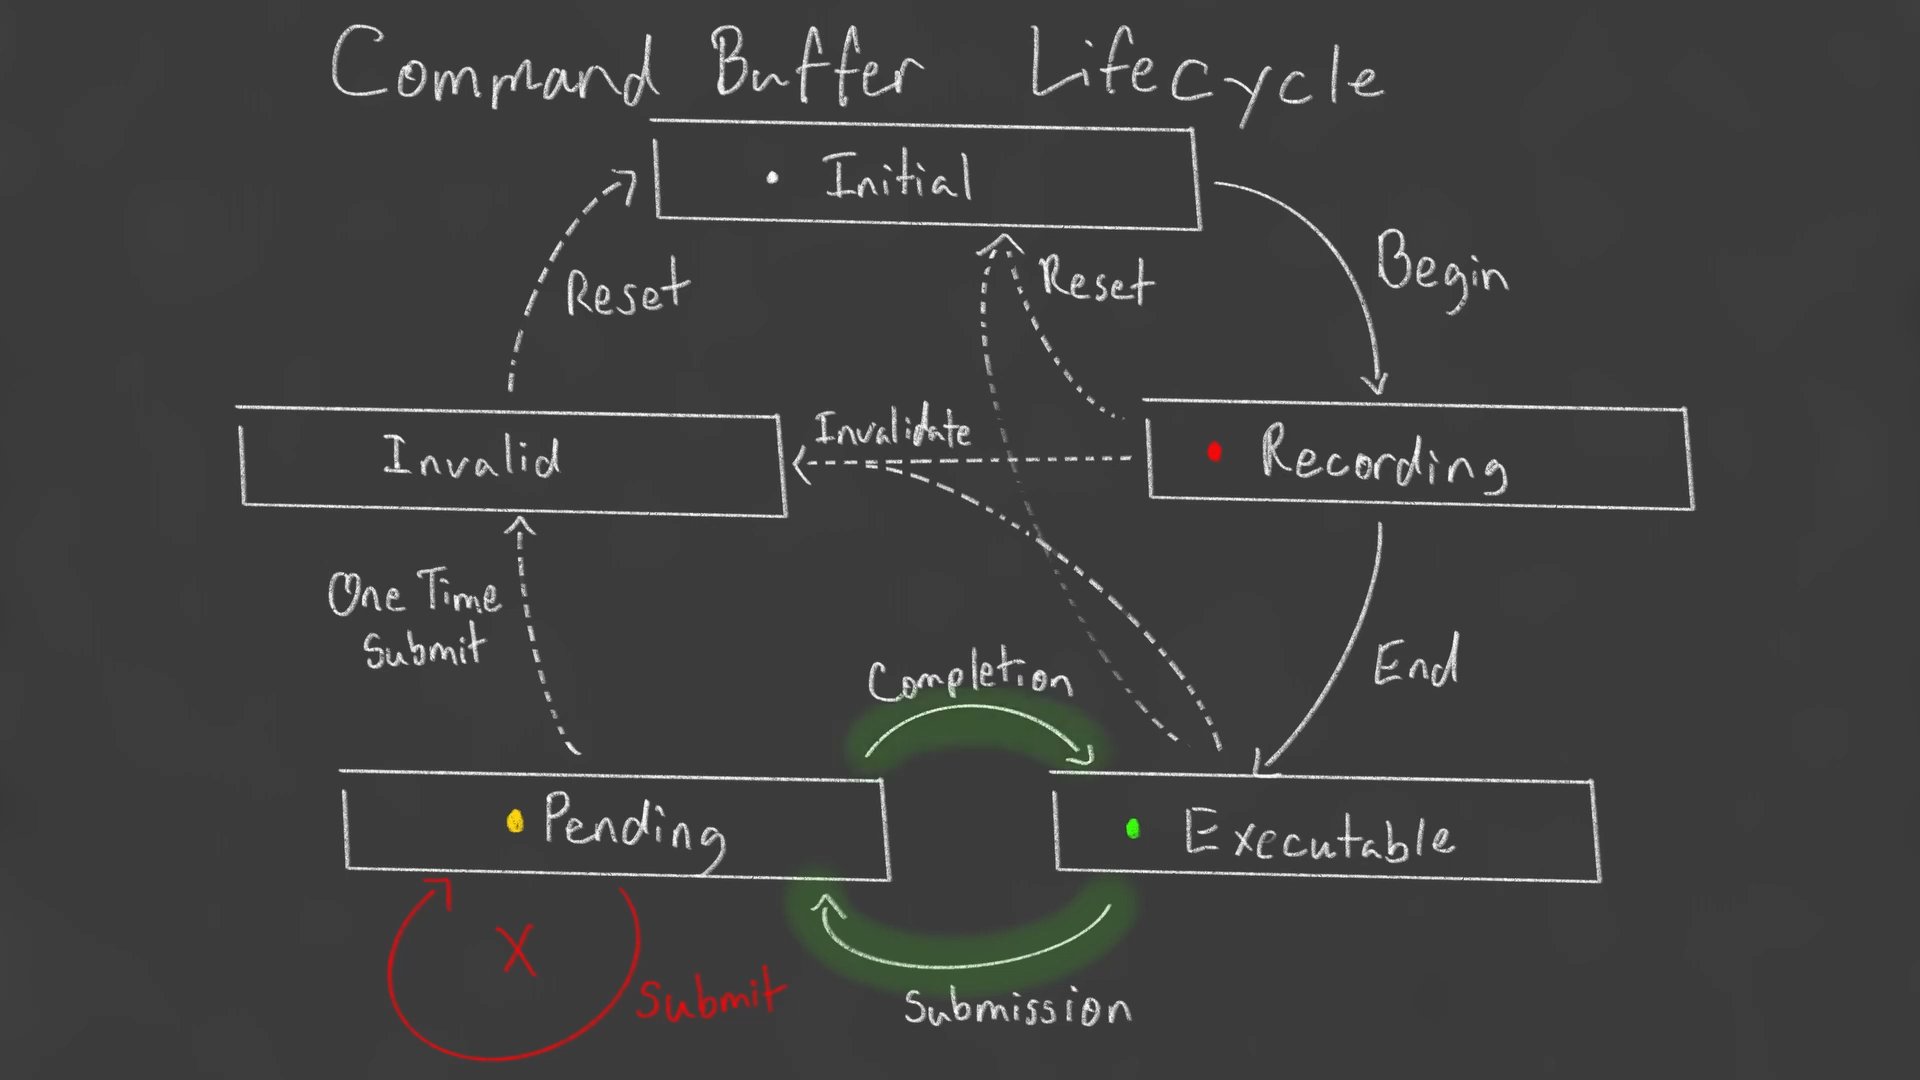 Command Buffer Lifecycle
Initial
Reset
Reset
Begin
Invalid
Invalidate
Recording
One Time
Submit
Completion
End
Pending
Executable
X
Submit
Submission